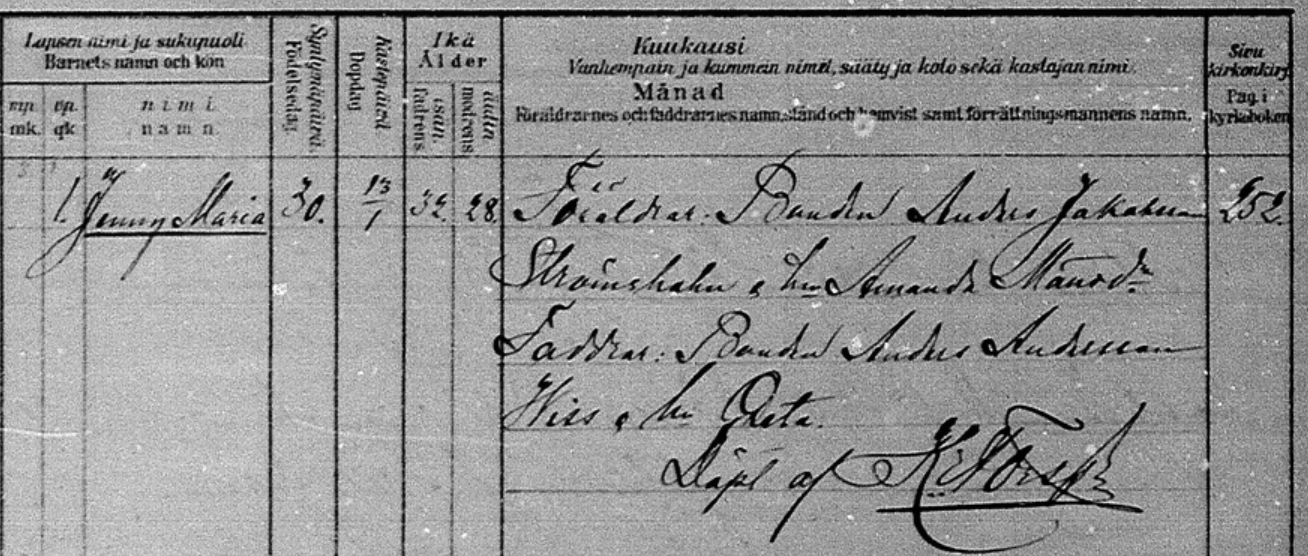 Lapsen nimi ja sukupuoli
Barnets namn och kön
mp. vp. nimi.
mk. qk namn
Syntymäpäivä.
Födelsedag.
Kastepäivä
Dopdag
Ikä
Ålder
isän.
fadrens
äidin
modrens
Kuukausi
Vanhempain ja kummein nimet, sääty ja koto sekä kastajan nimi.
Månad
Föräldrarnes och faddrarnes namn, stånd och hemvist samt förrättningsmannens namn.
Sivu kirkonkirj.
Pag. i kyrkoboken
1. Jenny Maria 30. 13/1 32. 28. Föräldrar: Bonden Anders Jakobsson 252.
hu Amanda Månsdr
Faddrar: Bonden Anders Andersson
Wiss o hu Greta.
Döpt af